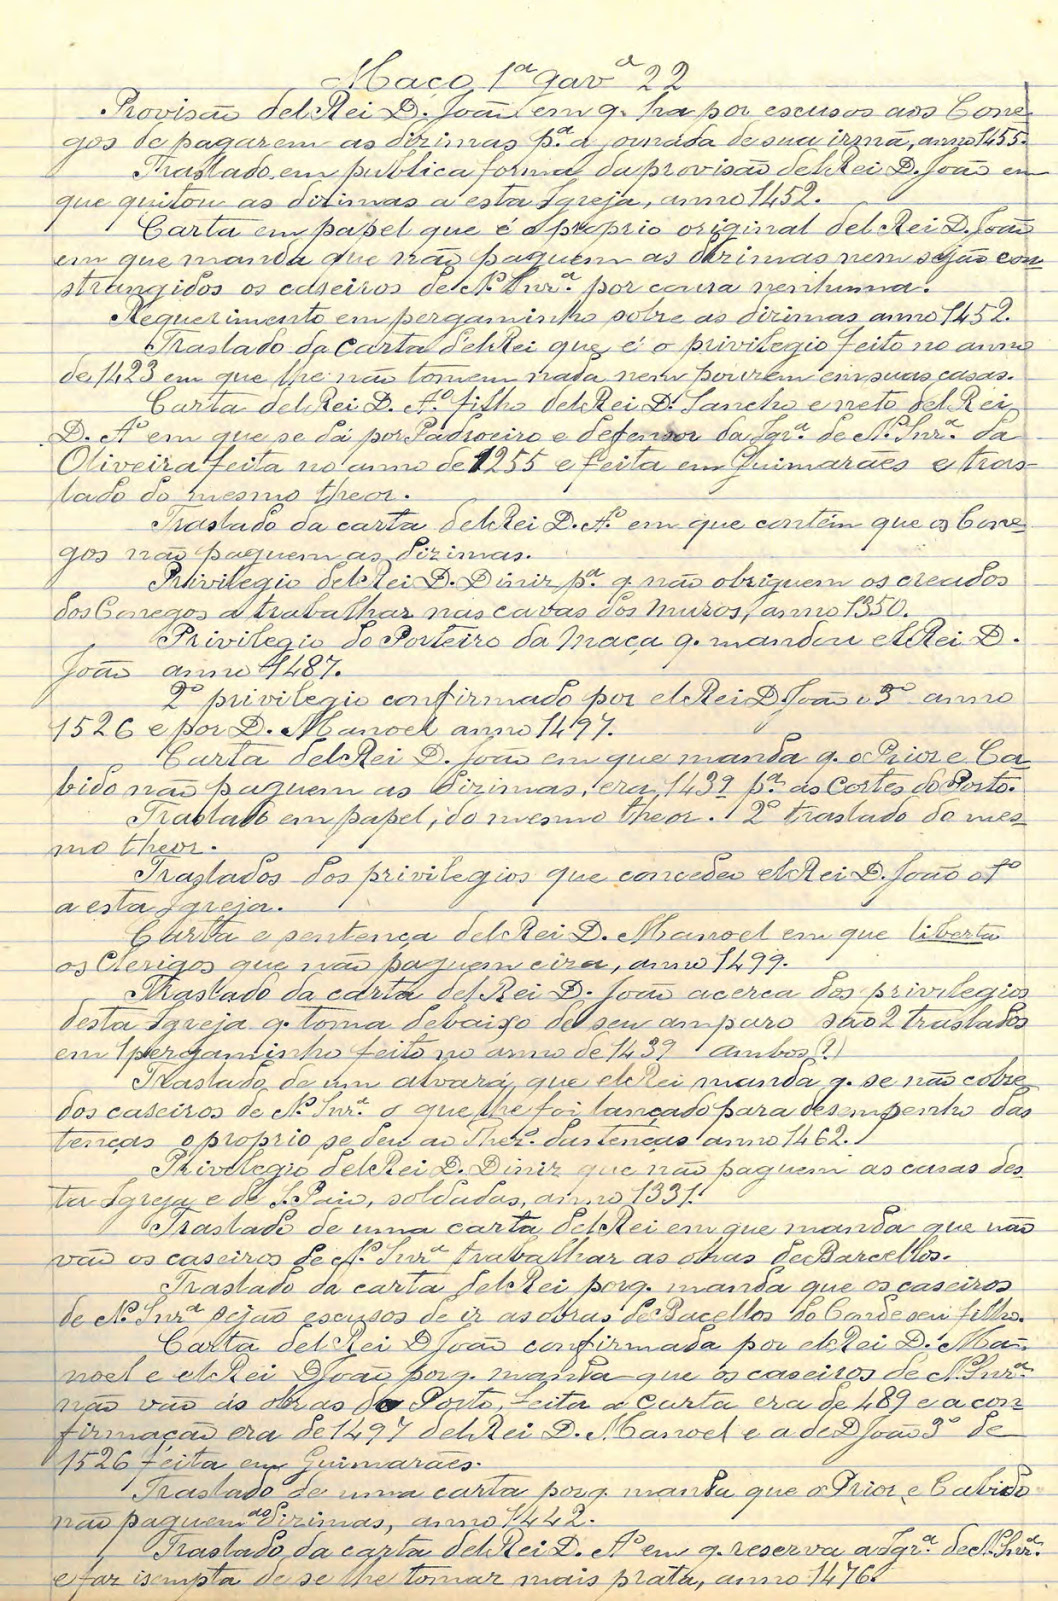 Maço 1ª gavª 22
Provisão delRei D. João em q. ha por escusos aos Cone-
gos de pagarem as dizimas pª a jornada de sua irmã, anno 1455.
Traslado em publica forma da provisão delRei D. João em
que quitou as dizimas a esta Igreja, anno 1452.
Carta em papel que é o proprio original delRei D. João
em que manda que não paguem as dizimas nem sejão con-
strangidos os caseiros de Nª Snrª por coura nenhuma.
Requerimento em pergaminho sobre as dizimas anno 1452.
Traslado da Carta d'elRei que é o privilegio feito no anno
de 1423 em que lhe não tomem nada nem pouzem em suas casas.
Carta delRei D. Aº filho delRei D. Sancho e neto delRei
D. Aº em que se dá por Padroeiro e defensor da Igrª de Nª Snrª da
Oliveira feita no anno de 1255 e feita em Guimarães e tras-
lado do mesmo theor.
Traslado da carta delRei D. Aº em que contém que os Cone-
gos não paguem as dizimas.
Privilegio delRei D. Diniz pª q. não obriguem os creados
dos Conegos a trabalhar nas cavas dos muros, anno 1350.
Privilegio do Porteiro da Maça q. mandou elRei D.
João anno 1487.
2º privilegio confirmado por elRei D. João o 3º anno
1526 e por D. Manoel anno 1497.
Carta delRei D. João em que manda q. o Prior e Ca-
bido não paguem as dizimas, era 1439 pª as Cortes do Porto.
Traslado em papel, do mesmo theor. 2º traslado do mes-
mo theor.
Traslados dos privilegios que concedeu elRei D. João o 1º
a esta Igreja.
Carta e sentença delRei D. Manoel em que liberta
os Clerigos que não paguem ciza, anno 1499.
Traslado da carta delRei D. João acerca dos privilegios
desta Igreja q. toma debaixo de seu amparo são 2 traslados
em 1 pergaminho feito no anno de 1439 ambos (?)
Traslado de um alvará que elRei manda q. se não cobre
dos caseiros de Nª Snrª o que lhe foi lançado para desempenho das
tenças o proprio se deu ao Thezº das tenças anno 1462.
Privilegio delRei D. Diniz que não paguem as casas des-
ta Igreja e de S. Paio, soldadas, anno 1331.
Traslado de uma carta delRei em que manda que não
vão os caseiros de Nª Snrª trabalhar as obras de Barcellos.
Traslado da carta delRei porq. manda que os caseiros
de Nª Snrª sejão escusos de ir as obras de Bacellos do Conde seu filho.
Carta delRei D João confirmada por elRei D. Ma-
noel e elRei D João porq. manda que os caseiros de Nª Snrª
não vão ás obras do Porto, feita a Carta era de 489 e a con-
firmação era de 1497 delRei D. Manoel e a de D João 3º de
1526 feita em Guimarães.
Traslado de uma carta porq. manda que o Prior e Cabido
não paguem as dizimas, anno 1442.
Traslado da carta delRei D. Aº em q. reserva a Igrª de Nª Snrª
e faz isempta de se lhe tomar mais prata, anno 1476.